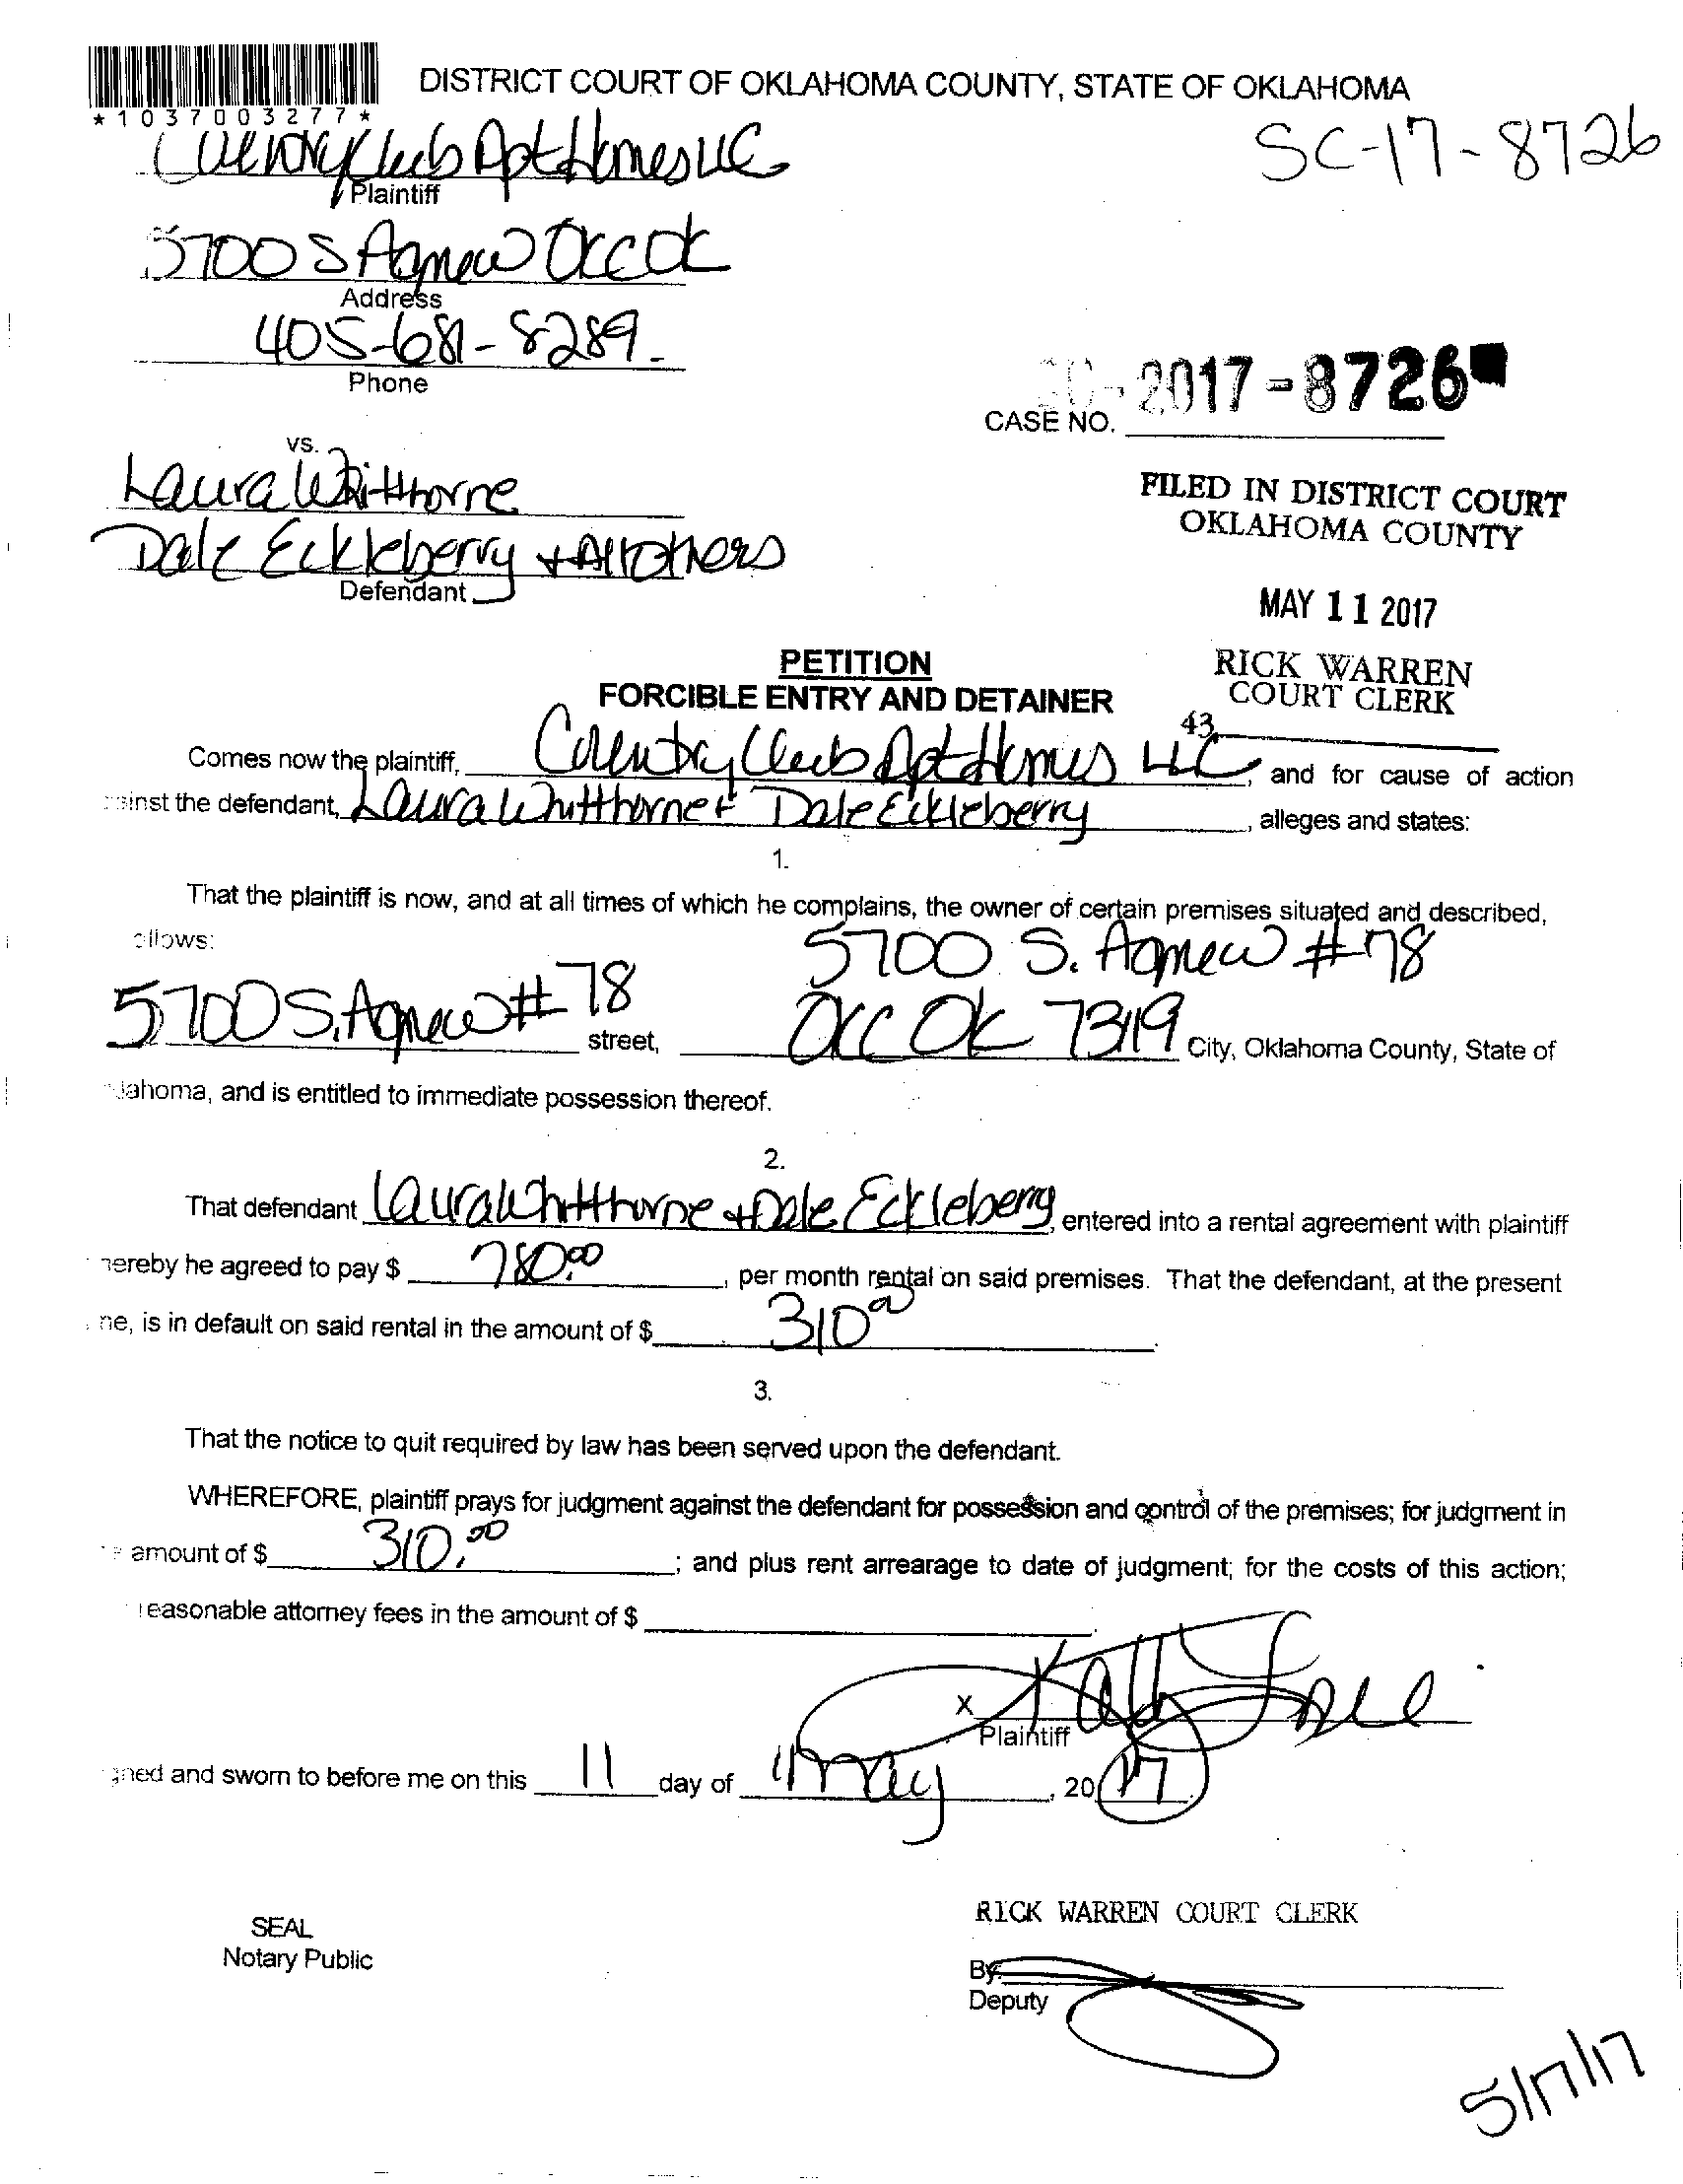 DISTRICT COURT OF OKLAHOMA COUNTY, STATE OF OKLAHOMA
*1037003277*
Country Club Apt Homes LLC
SC-17-8726
Plaintiff
5700 S Agnew OKC OK
Address
405-681-8289
Phone
SC-2017-8726
CASE NO.
vs.
Laura Whitthorne
Dale Eckleberry + All Others
Defendant
FILED IN DISTRICT COURT
OKLAHOMA COUNTY
MAY 11 2017
RICK WARREN
COURT CLERK
43
PETITION
FORCIBLE ENTRY AND DETAINER
Comes now the plaintiff, Country Club Apt Homes LLC, and for cause of action
ainst the defendant, Laura Whitthorne + Dale Eckleberry, alleges and states:
1.
That the plaintiff is now, and at all times of which he complains, the owner of certain premises situated and described,
ollows:
5700 S. Agnew #78
5700 S. Agnew #78 street, OKC OK 73119 City, Oklahoma County, State of
lahoma, and is entitled to immediate possession thereof.
2.
That defendant Laura Whitthorne + Dale Eckleberry, entered into a rental agreement with plaintiff
hereby he agreed to pay $ 780.00, per month rental on said premises. That the defendant, at the present
me, is in default on said rental in the amount of $ 310.00
3.
That the notice to quit required by law has been served upon the defendant.
WHEREFORE, plaintiff prays for judgment against the defendant for possession and control of the premises; for judgment in
e amount of $ 310.00; and plus rent arrearage to date of judgment; for the costs of this action;
reasonable attorney fees in the amount of $
X
Plaintiff
gned and sworn to before me on this 11 day of May, 2017
SEAL
Notary Public
RICK WARREN COURT CLERK
By:
Deputy
5/17/17